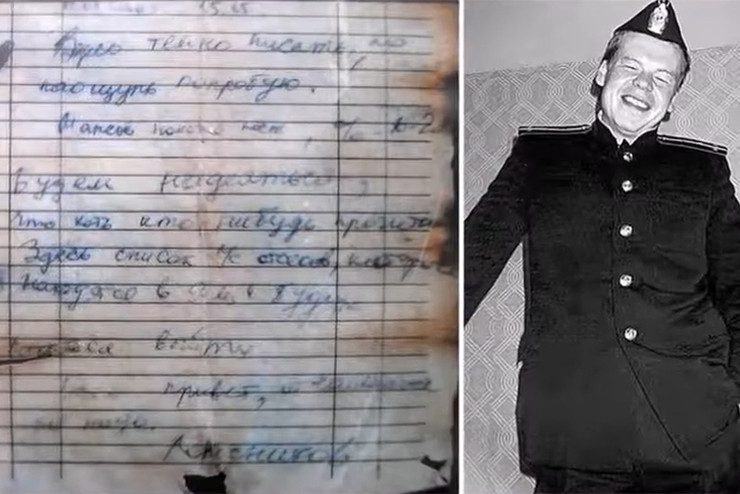 15.15
Здесь темно писать, но
наощупь попробую.
Шансов похоже нет, % 10-2
Будем надеяться,
что хоть кто нибудь прочита
Здесь список л/с отсеков, которые
находятся в и будут
выйти
привет, отчаиваться
не надо.
Колесников